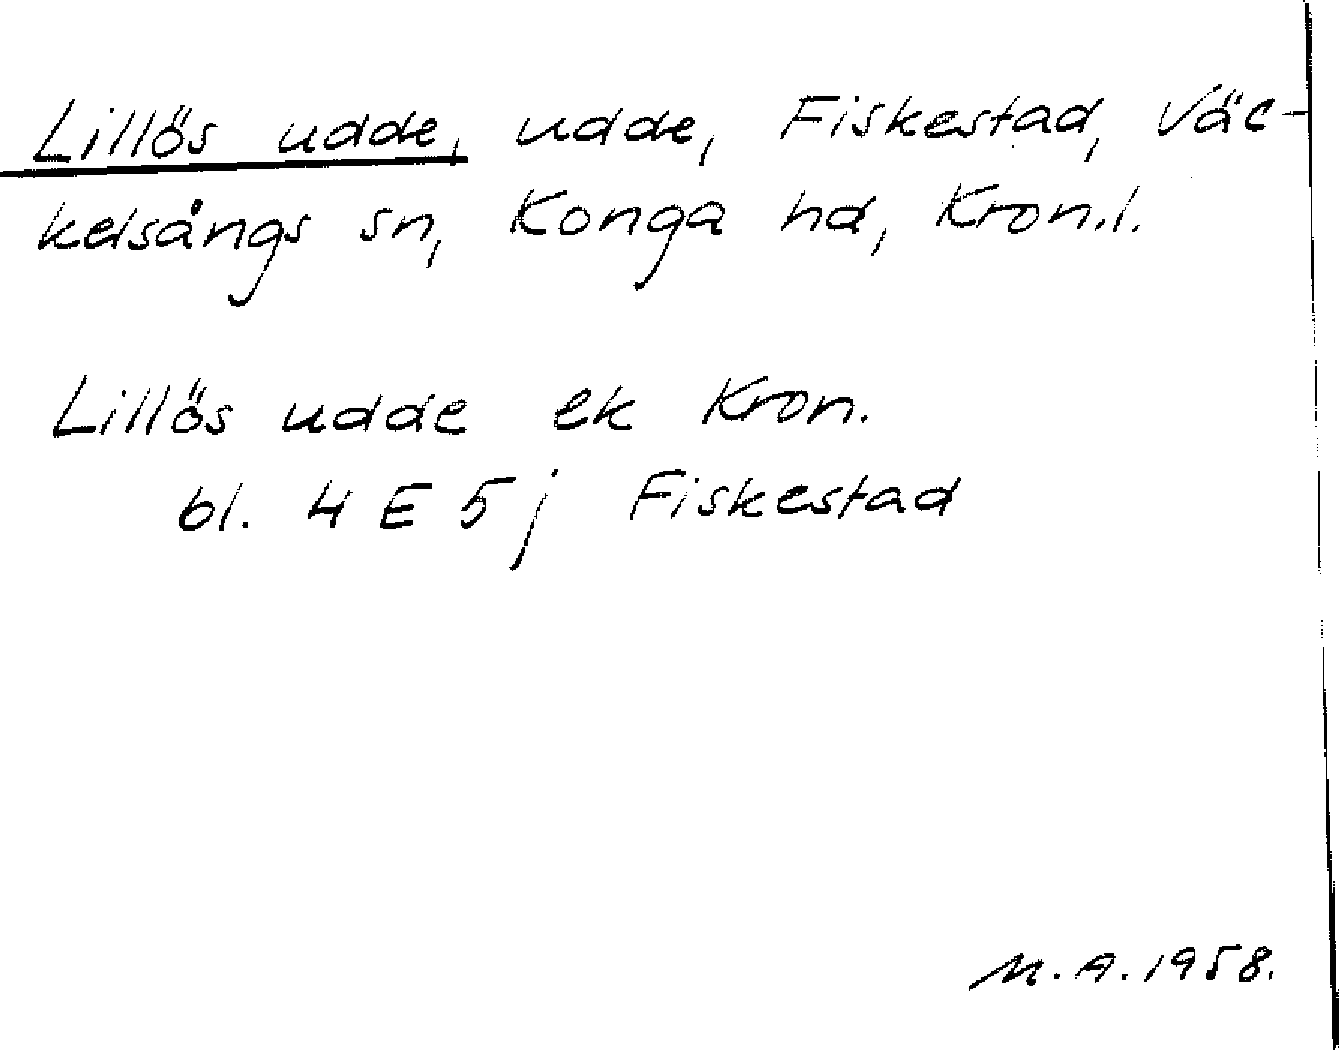 Lillös udde, udde, Fiskestad, Väc-
kelsångs sn, Konga hd, Kron.l.
Lillös udde ek Kron.
bl. 4 E 5 j Fiskestad
M.A. 1958.